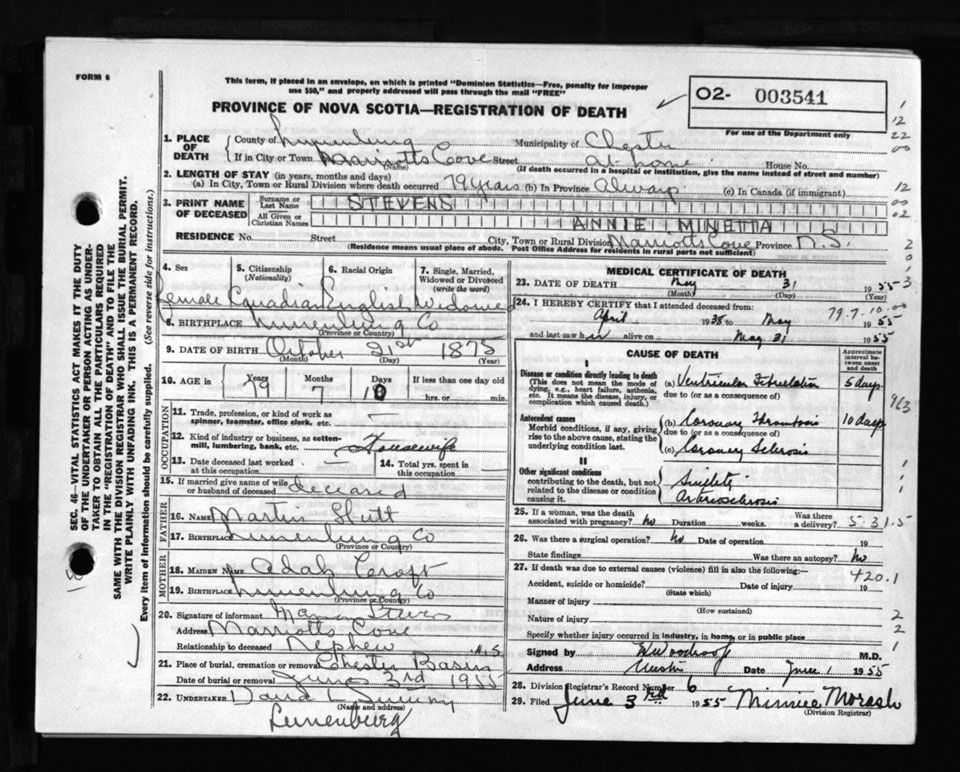 FORM 6
This form, if placed in an envelope, on which is printed "Dominion Statistics—Free, penalty for improper
use $50," and properly addressed will pass through the mail "FREE"
PROVINCE OF NOVA SCOTIA—REGISTRATION OF DEATH
O2- 003541
For use of the Department only
1. PLACE OF DEATH
County of Lunenburg Municipality of Chester
If in City or Town Marriotts Cove Street at home House No.
(Name) (If death occurred in a hospital or institution, give the name instead of street and number)
2. LENGTH OF STAY (in years, months and days)
(a) In City, Town or Rural Division where death occurred 79 years (b) In Province always (c) In Canada (if immigrant)
3. PRINT NAME OF DECEASED
Surname or Last Name STEVENS
All Given or Christian Names ANNIE MINETTA
RESIDENCE No. Street City, Town or Rural Division Marriotts Cove Province N.S.
(Residence means usual place of abode. Post Office Address for residents in rural parts not sufficient)
4. Sex
5. Citizenship (Nationality)
6. Racial Origin
7. Single, Married, Widowed or Divorced (write the word)
Female Canadian English Widowed
8. BIRTHPLACE Lunenburg Co
(Province or Country)
9. DATE OF BIRTH October 21st 1875
(Month) (Day) (Year)
10. AGE in Years Months Days If less than one day old
79 7 10 hrs. or min.
OCCUPATION
11. Trade, profession, or kind of work as spinner, teamster, office clerk, etc. —
12. Kind of industry or business, as cotton-mill, lumbering, bank, etc. Housewife
13. Date deceased last worked at this occupation —
14. Total yrs. spent in this occupation
15. If married give name of wife or husband of deceased deceased
FATHER
16. NAME Martin
17. BIRTHPLACE Lunenburg Co
(Province or Country)
MOTHER
18. MAIDEN NAME Adah Croft
19. BIRTHPLACE Lunenburg Co
(Province or Country)
20. Signature of informant
Address Marriotts Cove
Relationship to deceased Nephew N.S
21. Place of burial, cremation or removal Chester Basin
Date of burial or removal June 3rd 1955
22. UNDERTAKER David L
(Name and address)
Lunenburg
MEDICAL CERTIFICATE OF DEATH
23. DATE OF DEATH May 31 1955
(Month) (Day) (Year)
24. I HEREBY CERTIFY that I attended deceased from:
79-7-10-00
April 1938 to May 1955
and last saw h alive on May 31 1955
CAUSE OF DEATH
Approximate interval between onset and death
I
Disease or condition directly leading to death
(This does not mean the mode of dying, e.g., heart failure, asthenia, etc. It means the disease, injury, or complication which caused death.)
(a) Ventricular Fibrillation 5 days
due to (or as a consequence of)
963
Antecedent causes
Morbid conditions, if any, giving rise to the above cause, stating the underlying condition last.
(b) Coronary Thrombosis 10 days
due to (or as a consequence of)
(c) Coronary Sclerosis
II
Other significant conditions
contributing to the death, but not related to the disease or condition causing it.
Senility
Arteriosclerosis
25. If a woman, was the death associated with pregnancy? No Duration weeks. Was there a delivery?
5-31-5
26. Was there a surgical operation? No Date of operation 19
State findings Was there an autopsy? No
27. If death was due to external causes (violence) fill in also the following:—
420.1
Accident, suicide or homicide? Date of injury 19
(State which)
Manner of injury
(How sustained)
Nature of injury
Specify whether injury occurred in industry, in home, or in public place
Signed by M.D.
Address Date June 1 1955
28. Division Registrar's Record Number 6
29. Filed June 3rd 1955 Minnie Morash
(Division Registrar)
SEC. 46—VITAL STATISTICS ACT MAKES IT THE DUTY
OF THE UNDERTAKER OR PERSON ACTING AS UNDER-
TAKER TO OBTAIN ALL THE PARTICULARS REQUIRED
IN THE "REGISTRATION OF DEATH" AND TO FILE THE
SAME WITH THE DIVISION REGISTRAR WHO SHALL ISSUE THE BURIAL PERMIT.
WRITE PLAINLY WITH UNFADING INK. THIS IS A PERMANENT RECORD.
Every item of information should be carefully supplied. (See reverse side for instructions.)